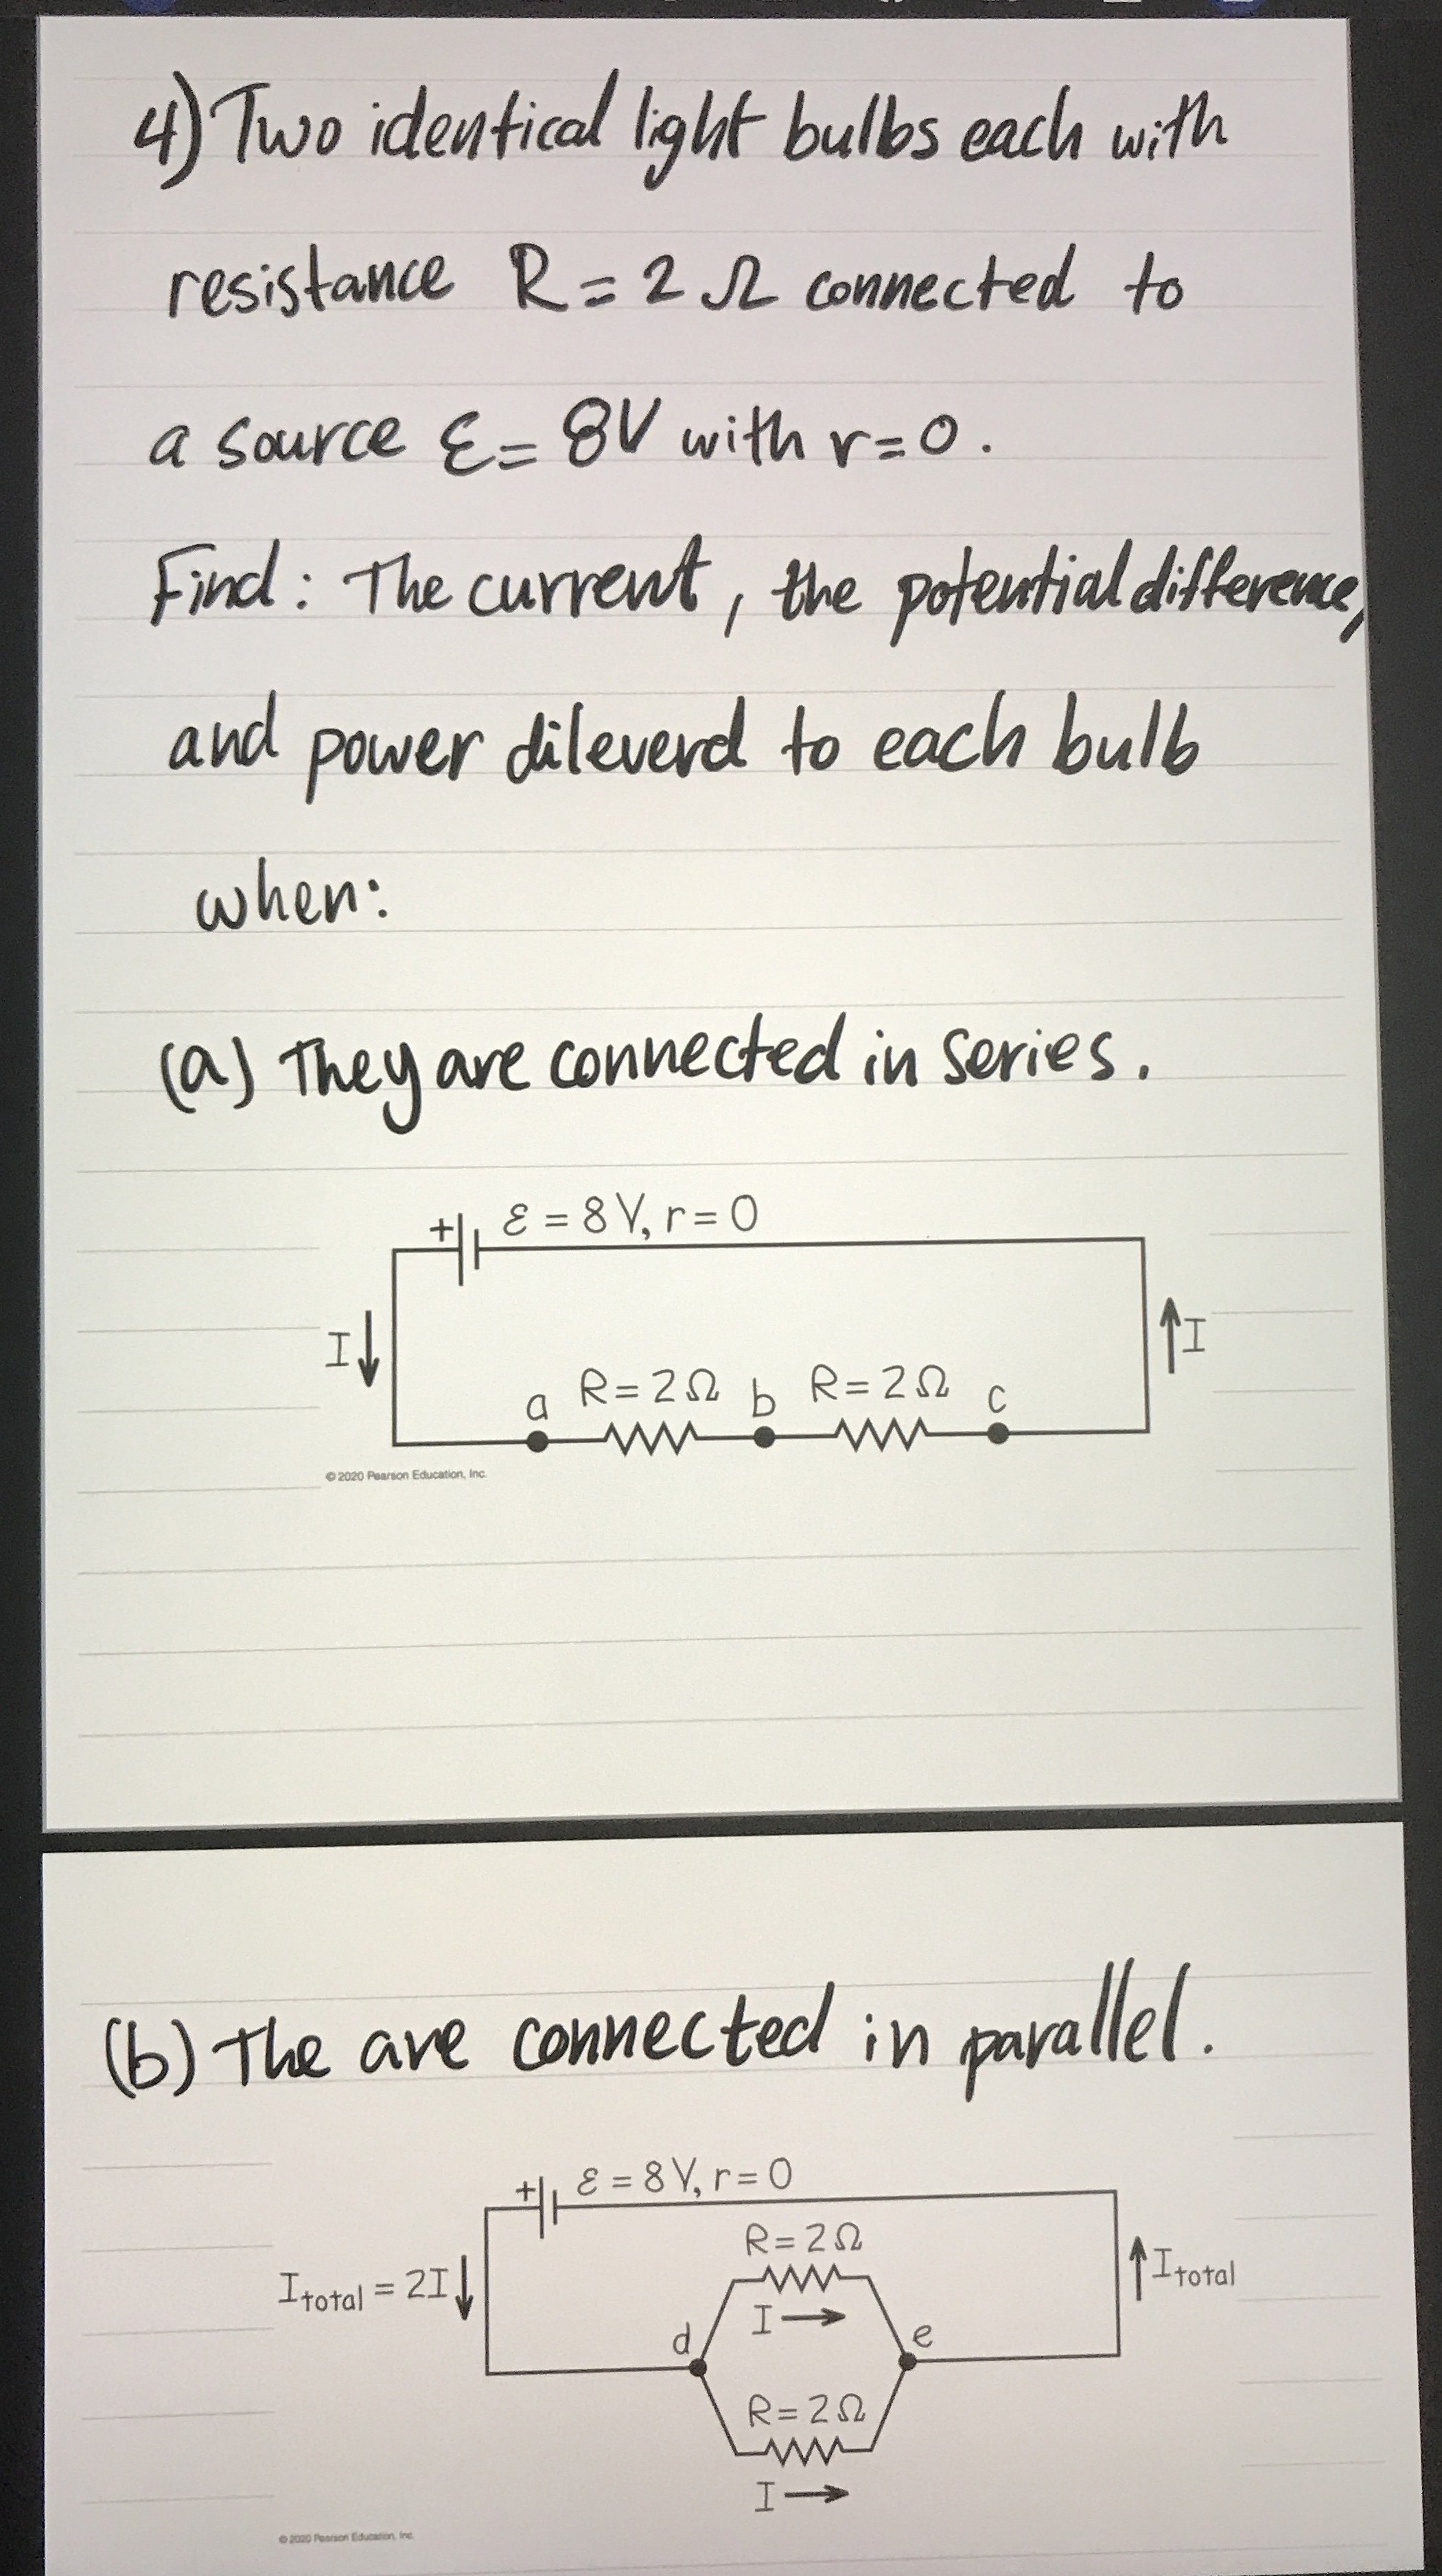 4) Two identical light bulbs each with
resistance R = 2 Ω connected to
a source ε = 8V with r = 0 .
Find : The current , the potential difference,
and power dileverd to each bulb
when:
(a) They are connected in series .
+ ε = 8 V, r = 0
I I
a R = 2 Ω b R = 2 Ω c
© 2020 Pearson Education, Inc.
(b) The are connected in parallel .
+ ε = 8 V, r = 0
R = 2 Ω
Itotal = 2I Itotal
I
d e
R = 2 Ω
I
© 2020 Pearson Education, Inc.